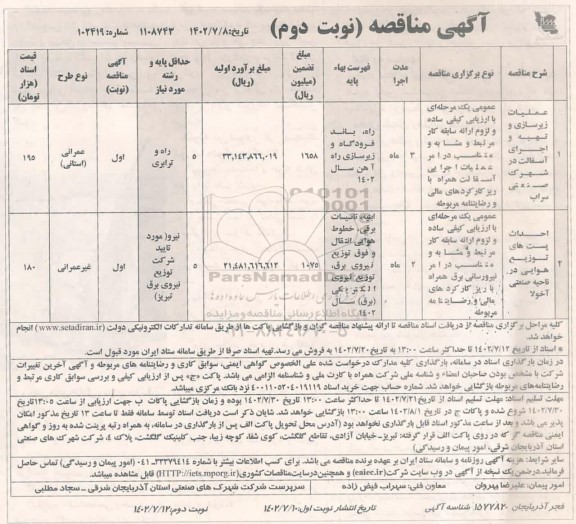 آگهی مناقصه (نوبت دوم)
تاریخ: ۱۴۰۲/۷/۸ ۱۱۰۸۷۴۳ شماره: ۱۰۲۴۱۹
شرح مناقصه
نوع برگزاری مناقصه
مدت اجرا
فهرست بهاء پایه
مبلغ تضمین (میلیون ریال)
مبلغ برآورد اولیه (ریال)
حداقل پایه و رشته مورد نیاز
آگهی مناقصه (نوبت)
نوع طرح
قیمت اسناد (هزار تومان)
۱
عملیات
زیرسازی و
تهیه و
اجرای
آسفالت در
شهرک
صنعتی
سراب
عمومی یک مرحله‌ای
با ارزیابی کیفی ساده
و لزوم ارائه سابقه کار
مرتبط و مشابه و
متناسب در امر
عملیات اجرایی
آسفالت همراه با
ریز کارکردهای مالی
و رضایتنامه مربوطه
۳ ماه
راه، باند
فرودگاه و
زیرسازی راه
آهن سال
۱۴۰۲
۱۶۵۸
۳۳,۱۴۳,۸۶۶,۰۱۹
۵
راه و ترابری
اول
عمرانی (استانی)
۱۹۵
۲
احداث
پست های
توزیع
هوایی در
ناحیه صنعتی
آخولا
عمومی یک مرحله‌ای
با ارزیابی کیفی ساده
و لزوم ارائه سابقه کار
مرتبط و مشابه و
متناسب در امر
نیرورسانی برق همراه
با ریز کارکردهای
مالی و رضایتنامه
مربوطه
۲ ماه
ابنیه، تاسیسات
برقی، خطوط
هوایی انتقال
و فوق توزیع
نیروی برق،
توزیع نیروی
الکتریکی
(برق) سال
۱۴۰۲
۱۰۷۵
۲۱,۴۸۱,۶۱۶,۶۱۲
۵
نیرو( مورد
تایید
شرکت
توزیع
نیروی برق
تبریز)
اول
غیرعمرانی
۱۸۰
ParsNamadData
کلیه مراحل برگزاری مناقصه از دریافت اسناد مناقصه تا ارائه پیشنهاد مناقصه گران و بازگشایی پاکت ها از طریق سامانه تدارکات الکترونیکی دولت (www.setadiran.ir) انجام
خواهد شد.
* اسناد از تاریخ ۱۴۰۲/۷/۱۲ تا حداکثر ساعت ۱۳:۰۰ به تاریخ ۱۴۰۲/۷/۲۰ به فروش می رسد. تهیه اسناد صرفا از طریق سامانه ستاد ایران مورد قبول است.
در زمان بارگذاری اسناد در سامانه، بارگذاری کلیه مدارک درخواست شده علی الخصوص گواهی ایمنی، سوابق کاری و رضایتنامه های مربوطه و آگهی آخرین تغییرات
شرکت با مشخص بودن صاحبان امضاء و شناسه ملی شرکت همراه با کارت ملی و شناسنامه الزامی می باشد. پاکت «ج» پس از ارزیابی کیفی و بررسی سوابق کاری مرتبط و
رضایتنامه‌های مربوطه بازگشایی خواهد شد. شماره حساب جهت خرید اسناد ۴۰۰۱۱۰۵۲۰۴۰۱۹۱۱۹ نزد بانک مرکزی میباشد.
مهلت تسلیم اسناد: مهلت تسلیم اسناد از تاریخ ۱۴۰۲/۷/۲۱ تا حداکثر ساعت ۱۳:۰۰ تاریخ ۱۴۰۲/۷/۳۰ بوده و زمان بازگشایی پاکات ب جهت ارزیابی از ساعت ۱۳:۰۵ تاریخ
۱۴۰۲/۷/۳۰ شروع شده و پاکات ج در تاریخ ۱۴۰۲/۸/۱ ساعت ۱۳:۰۰ بازگشایی خواهد شد. شایان ذکر است دریافت اسناد توسط سامانه فقط تا ساعت ۱۳ تاریخ مذکور امکان
پذیر می باشد و بعد از ساعت مذکور اسناد قابل بارگذاری نخواهد بود (آدرس محل تحویل پاکت الف پس از بارگذاری در سامانه، به همراه رتبه پرینت شده به روز و گواهی
ایمنی مناقصه گر که در روی پاکت الف قرار گرفته: تبریز- خیابان آزادی، تقاطع گلگشت، کوی شفا، کوچه زیبا، جنب کلینیک گلگشت، پلاک ۴، شرکت شهرک های صنعتی
استان آذربایجان شرقی، امور پیمان و رسیدگی)
سایر شرایط: هزینه آگهی روزنامه و سامانه ستاد ایران بر عهده برنده مناقصه می باشد. برای کسب اطلاعات بیشتر با شماره ۳۳۳۷۹۴۱۴-۰۴۱ (امور پیمان و رسیدگی) تماس حاصل
فرمائید. درضمن یک نسخه از آگهی در وب سایت شرکت (eaiec.ir) و همچنین درسایت مناقصات کشوری (HTTP://iets.mporg.ir) قابل مشاهده میباشد.
امور پیمان: علیرضا بهروان معاون فنی: سهراب فیض زاده سرپرست شرکت شهرک های صنعتی استان آذربایجان شرقی – سجاد مطلبی
فجر آذربایجان ۱۵۷۷۸۲۰ شناسه آگهی تاریخ انتشار نوبت اول: ۱۴۰۲/۷/۱۰ نوبت دوم: ۱۴۰۲/۷/۱۲